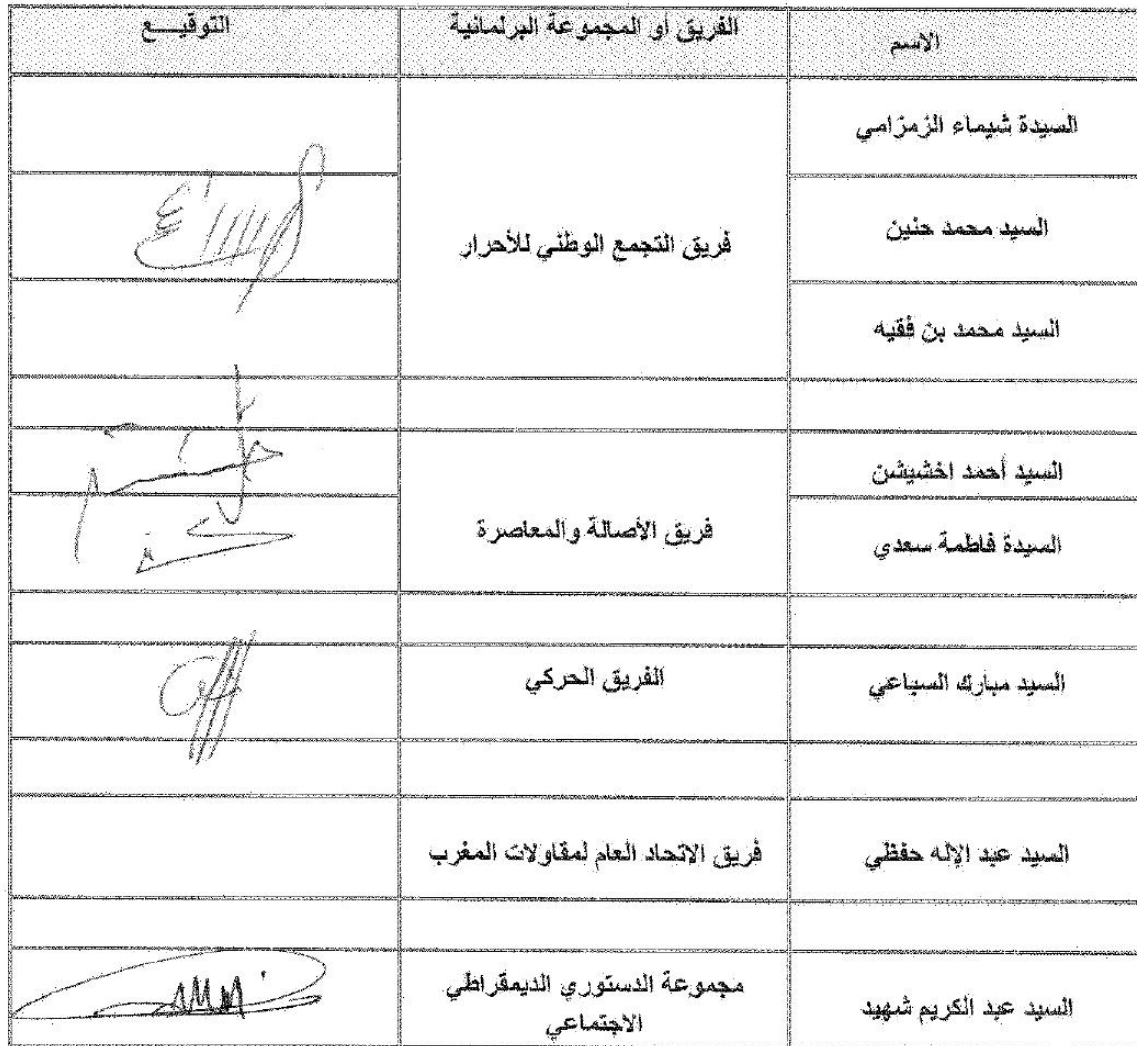 الاسم الفريق أو المجموعة البرلمانية التوقيـــع
السيدة شيماء الزمزامي
السيد محمد حنين
فريق التجمع الوطني للأحرار
السيد محمد بن فقيه
السيد أحمد اخشيشن
فريق الأصالة والمعاصرة
السيدة فاطمة سعدي
السيد مبارك السباعي الفريق الحركي
السيد عبد الإله حفظي فريق الاتحاد العام لمقاولات المغرب
السيد عبد الكريم شهيد مجموعة الدستوري الديمقراطي
الاجتماعي